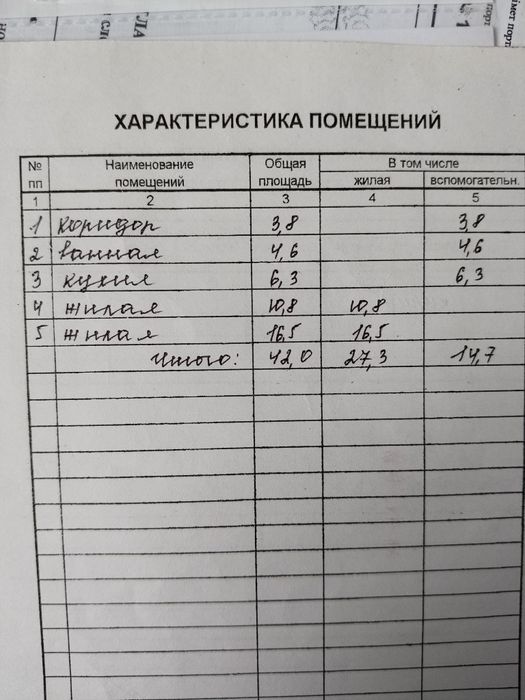 ХАРАКТЕРИСТИКА ПОМЕЩЕНИЙ
№ пп Наименование помещений Общая площадь В том числе
жилая вспомогательн.
1 2 3 4 5
1 коридор 3,8 3,8
2 ванная 4,6 4,6
3 кухня 6,3 6,3
4 жилая 10,8 10,8
5 жилая 16,5 16,5
Итого: 42,0 27,3 14,7